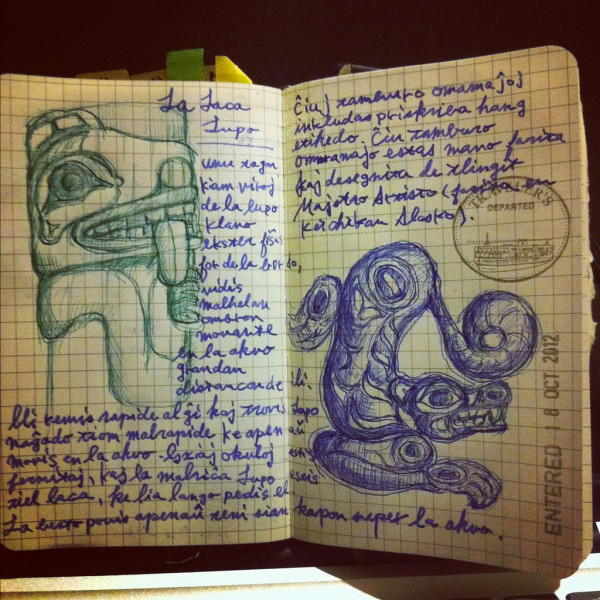 La Laca
Lupo
unu tagn
kiam viroj
de la lupo
klano
ekster fiŝas
for de la bordo,
vidis
malhelan
ombron
movante
en la akvo
grandan
distancon de ili.
Ili remis rapide al ĝi kaj trovis Lupo
naĝado tiom malrapide, ke apenaŭ
movis en la akvo. okuloj estis
fermitaj, kaj la malriĉa Lupo
tiel laca, ke lia lango perdis el
La besto povis apenaŭ teni sian kapon super la akvo.
Ĉiuj tamburo omamaĵoj
inkludas priskriba hang
etikedo. Ĉiu tamburo
omamaĵo estas mano farita
kaj desegnita de tlingit
Majstro Artisto (farita en
Keichikan Alasko).
TRAVELER'S
DEPARTED
ENTERED | 8 OCT 2012